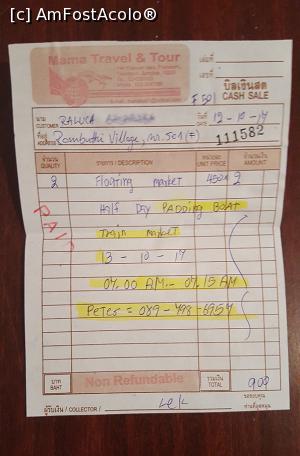 [c] AmFostAcolo®
Mama Travel & Tour
เล่มที่
เลขที่
บิลเงินสด
CASH SALE
F 501
นาม
CUSTOMER RALUCA
วันที่
DATE 12-10-17
ที่อยู่
ADDRESS Rambuttri Village, nr. 501 (F)
111582
จำนวน
QUANTITY
รายการ / DESCRIPTION
หน่วยละ
UNIT PRICE
จำนวนเงิน
AMOUNT
2 Floating market 450x2
Half Day PADDING BOAT
Train market
PAID
13 - 10 - 17
07.00 A.M. - 07.15 AM
Peter = 089-498-6954
บาท
BAHT
Non Refundable
รวมเงิน
TOTAL
900
ผู้รับเงิน / COLLECTOR
Lek
ขอขอบคุณ